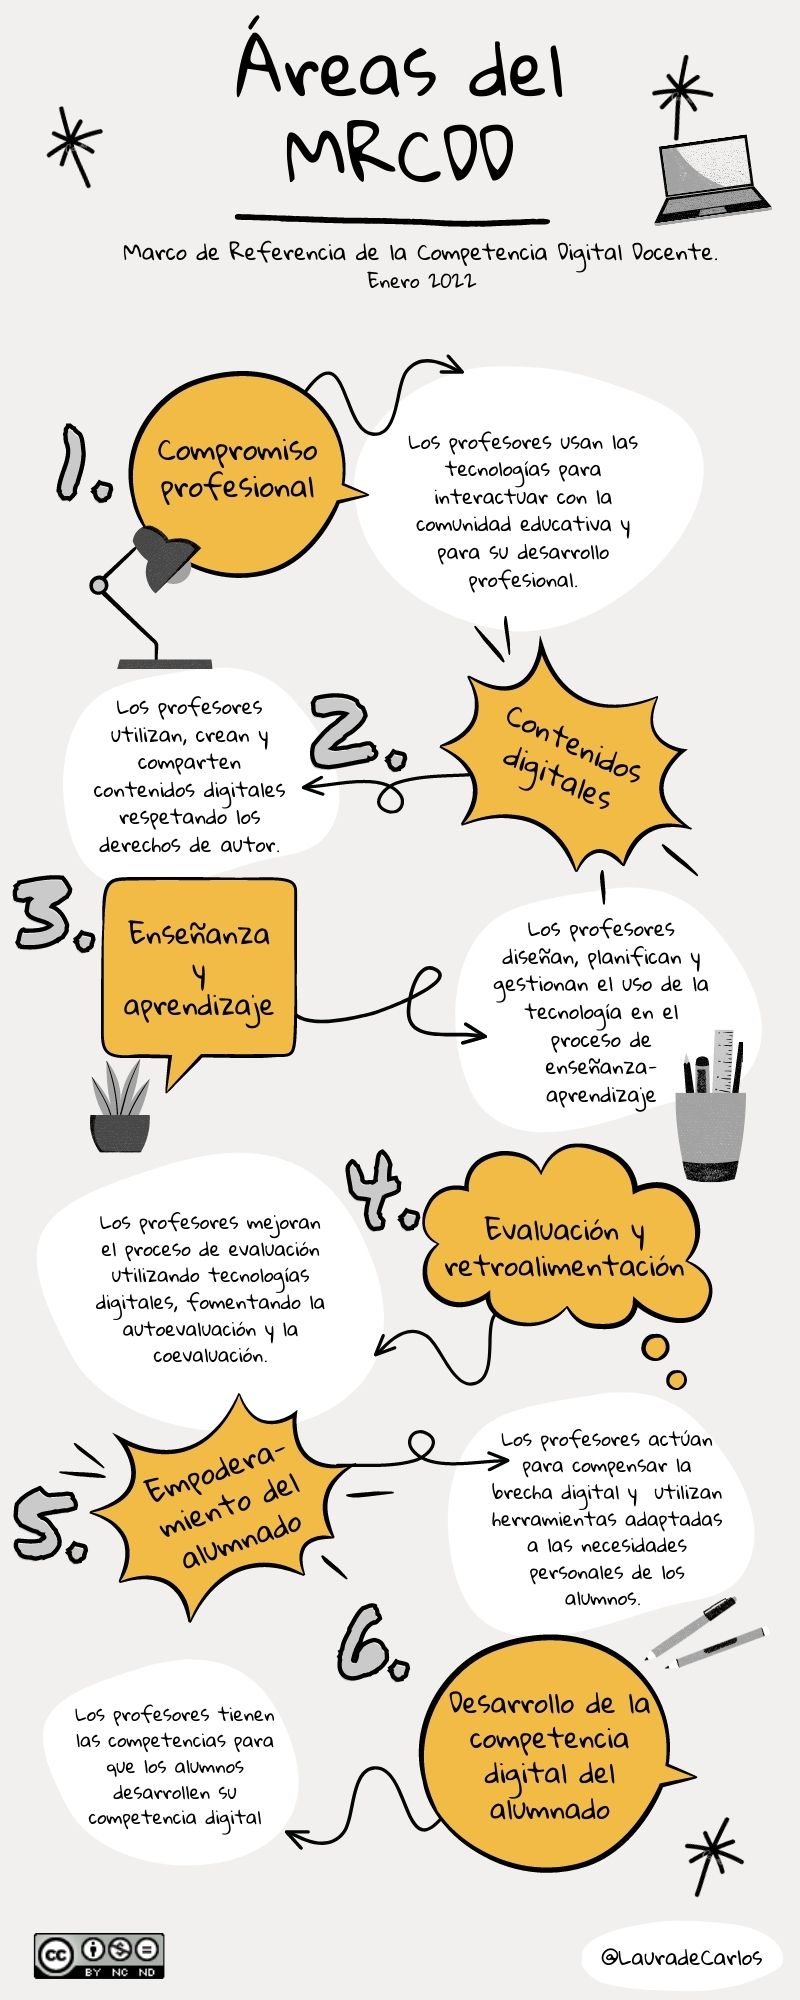 Áreas del
MRCDD
Marco de Referencia de la Competencia Digital Docente.
Enero 2022
1.
Compromiso
profesional
Los profesores usan las
tecnologías para
interactuar con la
comunidad educativa y
para su desarrollo
profesional.
2.
Contenidos
digitales
Los profesores
utilizan, crean y
comparten
contenidos digitales
respetando los
derechos de autor.
3.
Enseñanza
y
aprendizaje
Los profesores
diseñan, planifican y
gestionan el uso de la
tecnología en el
proceso de
enseñanza-
aprendizaje
4.
Evaluación y
retroalimentación
Los profesores mejoran
el proceso de evaluación
utilizando tecnologías
digitales, fomentando la
autoevaluación y la
coevaluación.
5.
Empodera-
miento del
alumnado
Los profesores actúan
para compensar la
brecha digital y utilizan
herramientas adaptadas
a las necesidades
personales de los
alumnos.
6.
Desarrollo de la
competencia
digital del
alumnado
Los profesores tienen
las competencias para
que los alumnos
desarrollen su
competencia digital
cc
BY NC ND
@LauradeCarlos